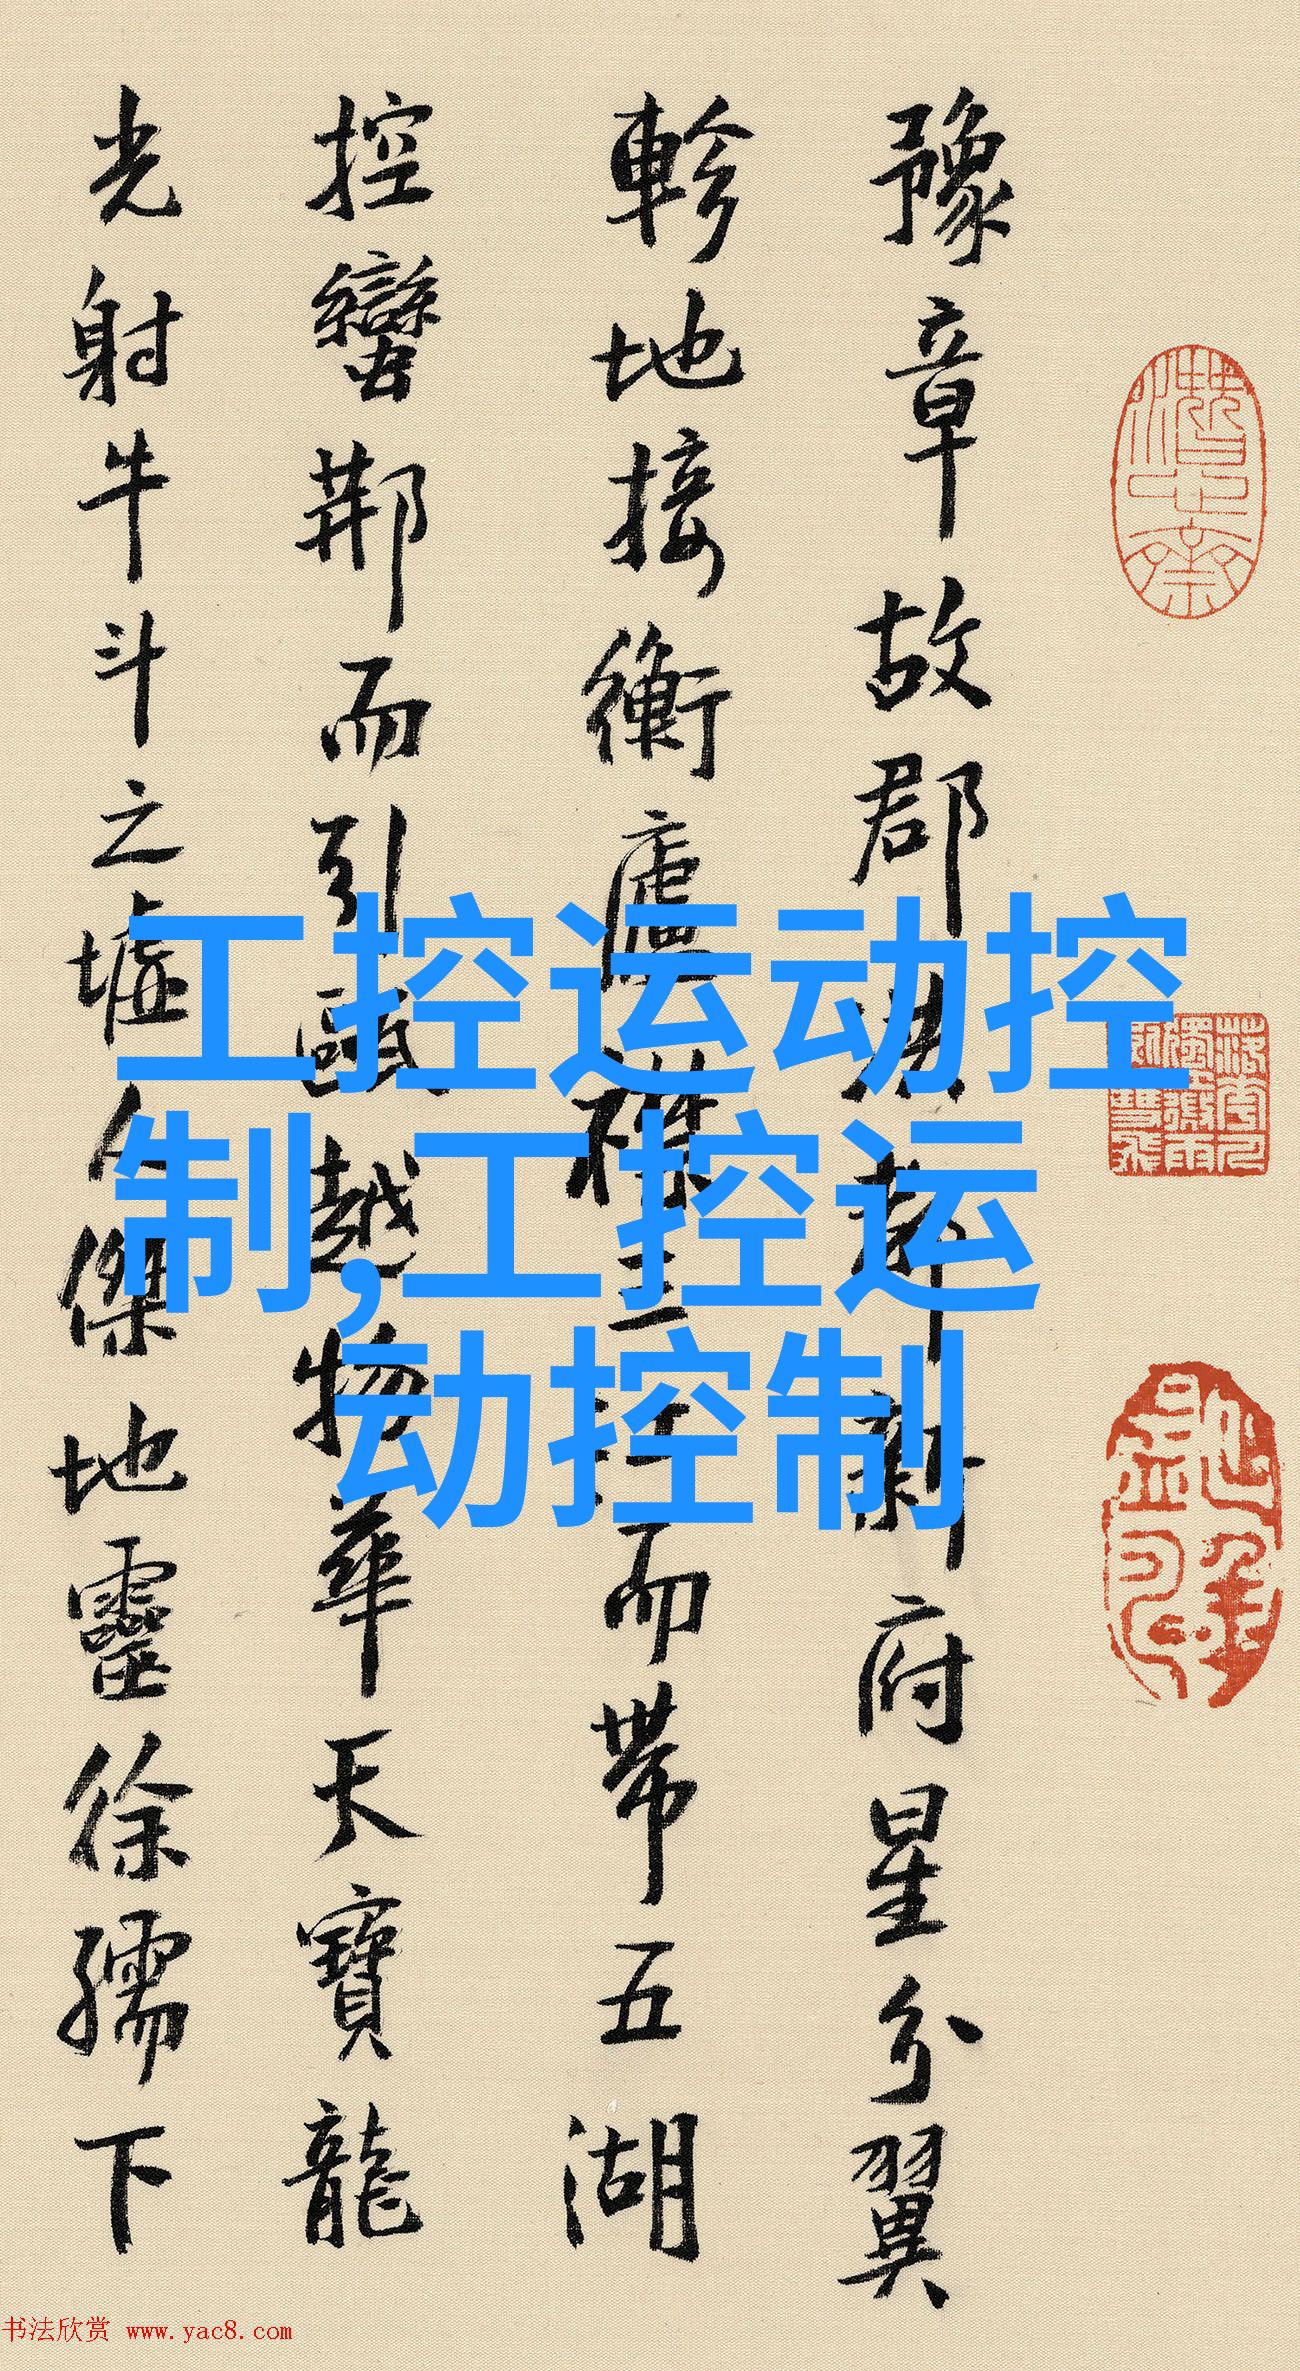 豫章故郡洪都新府星分翼
軫地接衡廬襟三江而帶五湖
控蠻荊而引甌越物華天寶龍
光射牛斗之墟人傑地靈徐孺下
工控运动控
制,工控运
动控制
书法欣赏 www.yac8.com